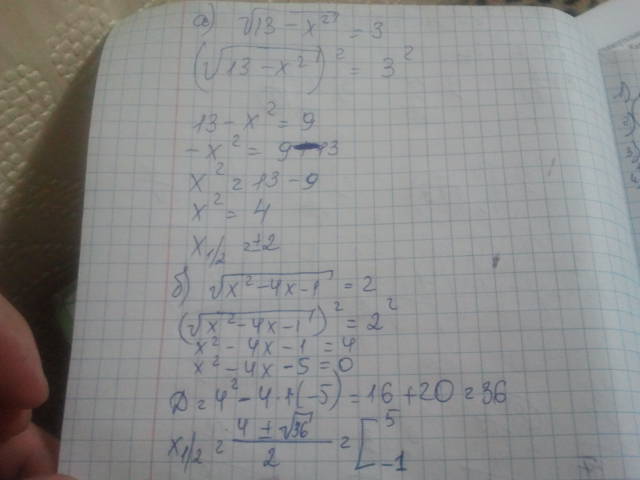 а) √13 - x² = 3
(√13 - x²)² = 3²
13 - x² = 9
-x² = 9 - 13
x² = 13 - 9
x² = 4
x1/2 = ±2
б) √x² - 4x - 1 = 2
(√x² - 4x - 1)² = 2²
x² - 4x - 1 = 4
x² - 4x - 5 = 0
D = 4² - 4·1·(-5) = 16 + 20 = 36
x1/2 = (4 ± √36)/2 = [5 -1